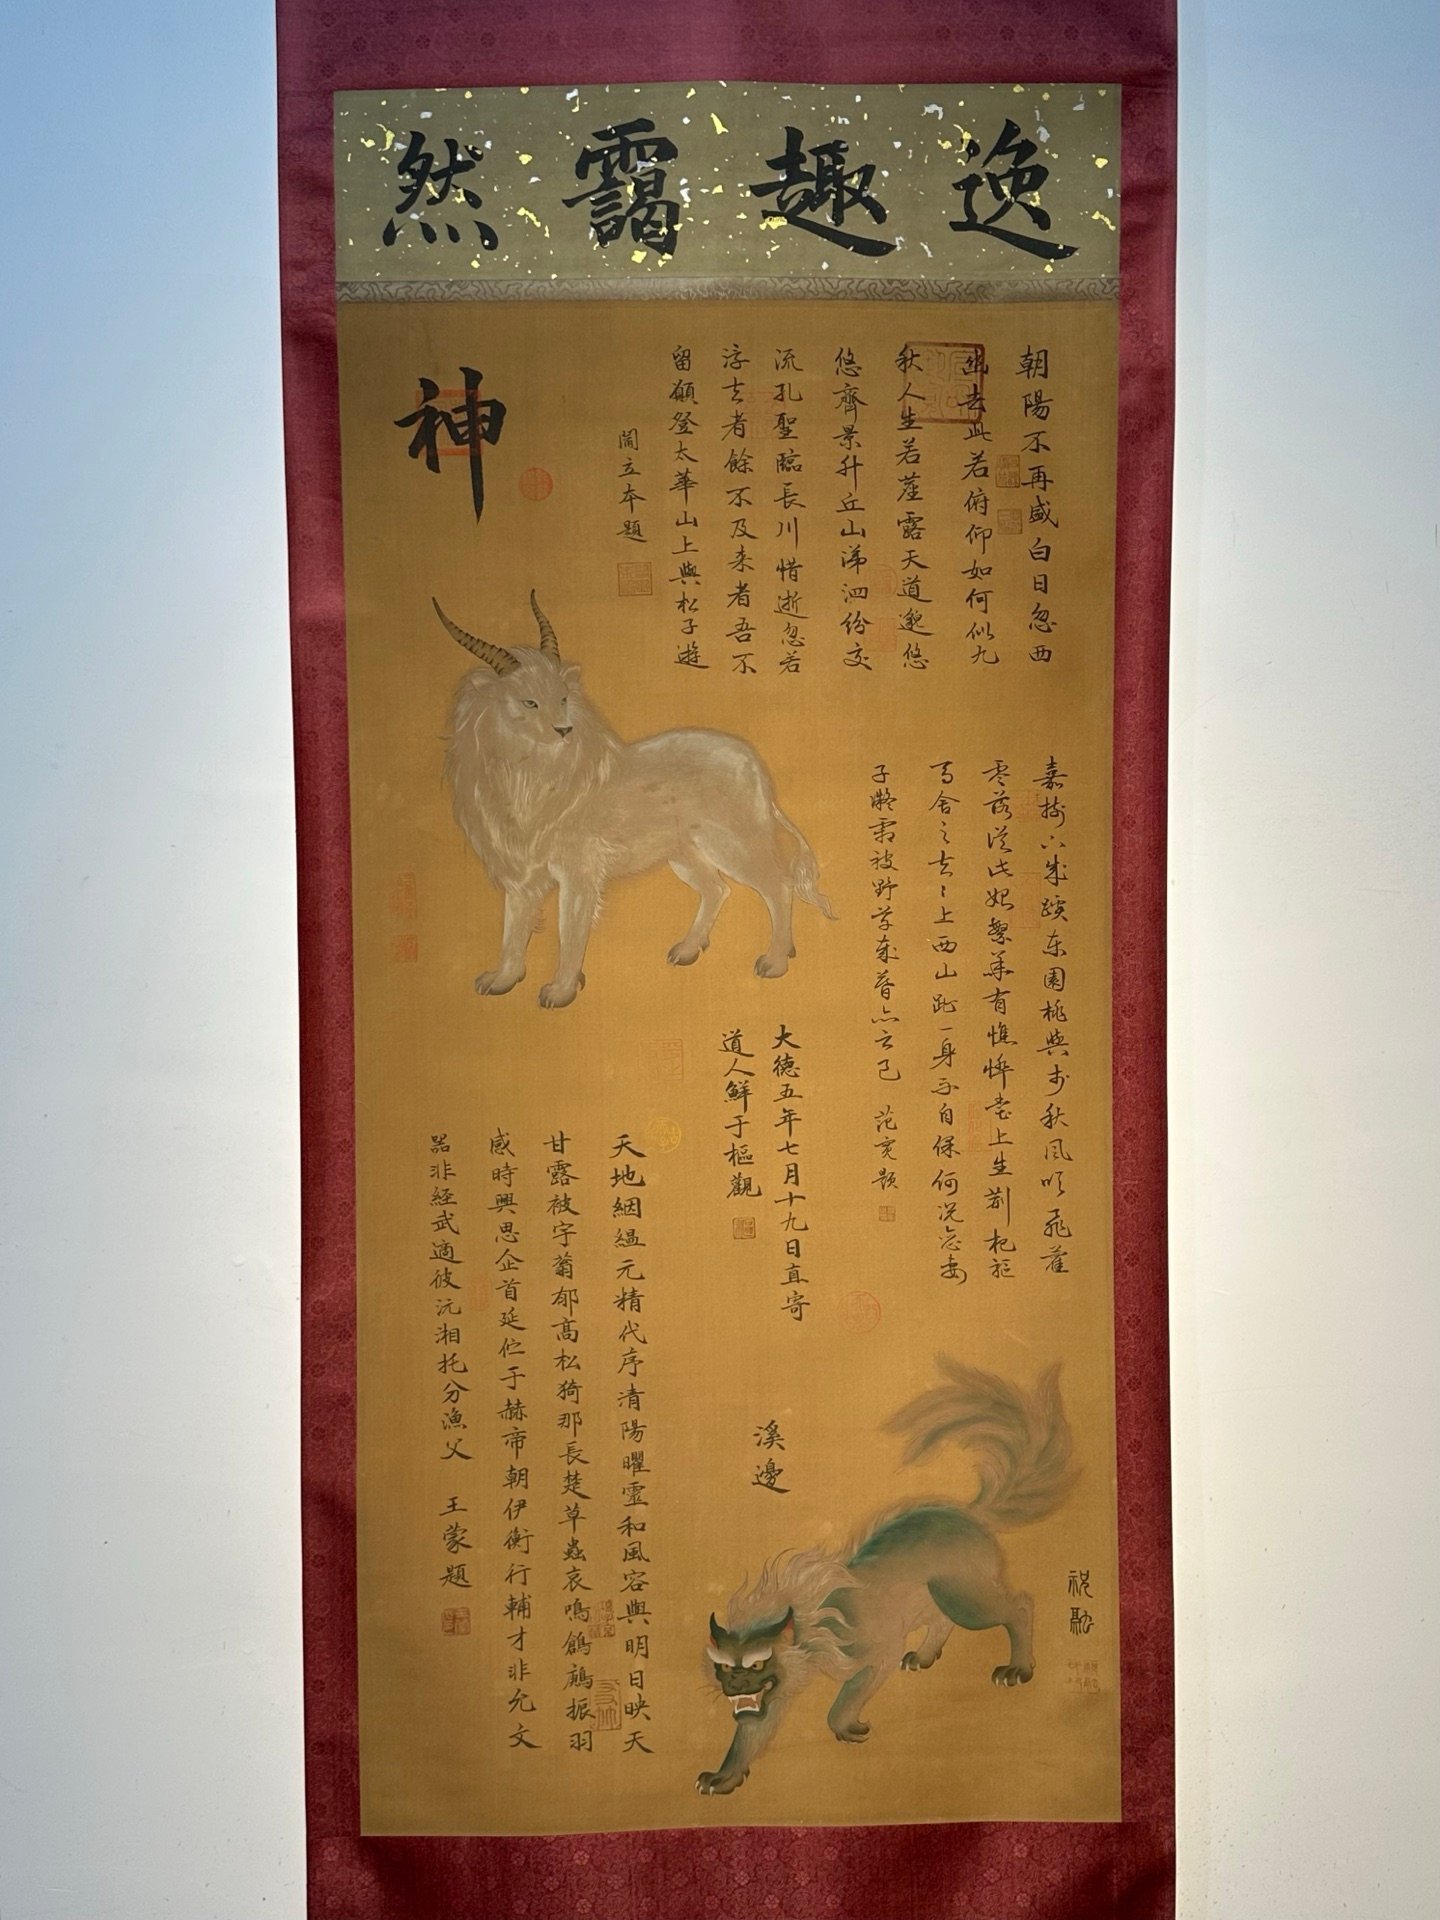 逸趣靄然
朝陽不再盛白日忽西
幽去此若俯仰如何似九
秋人生若塵露天道邈悠
悠齊景升丘山涕泗紛交
流孔聖臨長川惜逝忽若
浮去者餘不及来者吾不
留願登太華山上與松子遊
閻立本題
神
嘉樹下成蹊东園桃與李秋風吹飛藿
零落從此始繁華有憔悴堂上生荆杞驅
馬舍之去去上西山趾一身不自保何况恋妻
子凝霜被野草歲暮亦云已 范寛题
大德五年七月十九日直寄
道人鮮于樞觀
天地絪縕元精代序清陽曜靈和風容與明日映天
甘露被宇蓊郁高松猗那長楚草蟲哀鳴鶬鶊振羽
感時興思企首延佇于赫帝朝伊衡行輔才非允文
器非経武適彼沅湘托分漁父 王蒙題
溪邊
祝融